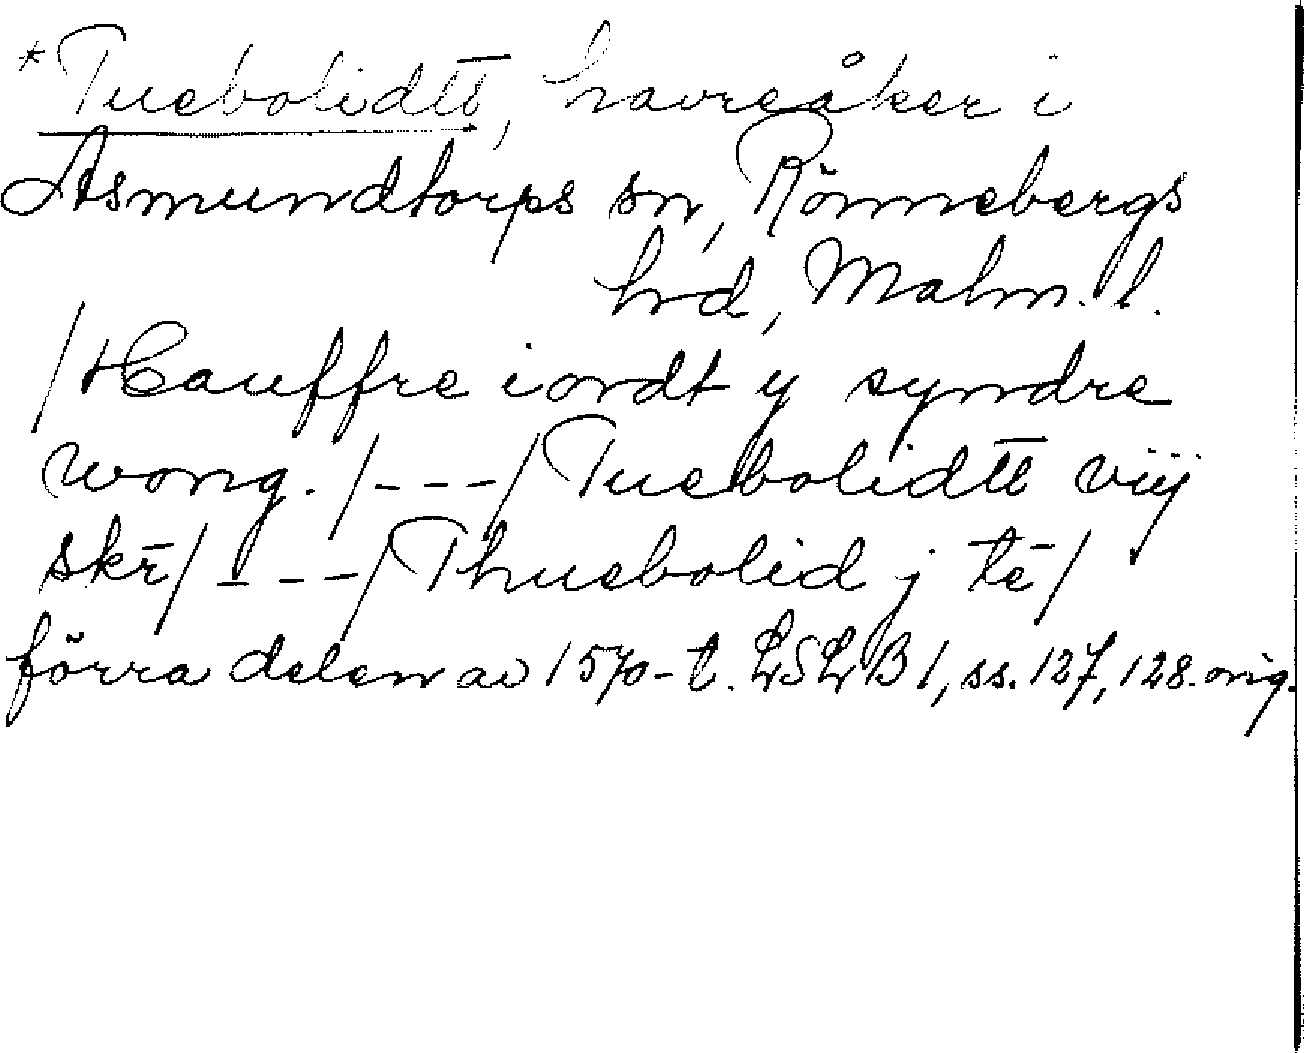 *Tuebolidtt, havreåker i
Asmundtorps sn, Rönnebergs
hrd, Malm. l.
/Hauffre iordt y syndre
wong. /---/ Tuebolidtt viij
skr̄/---/ Thuebolid j tē/
förra delen av 1570-t. LSLB 1, ss. 127, 128. orig.